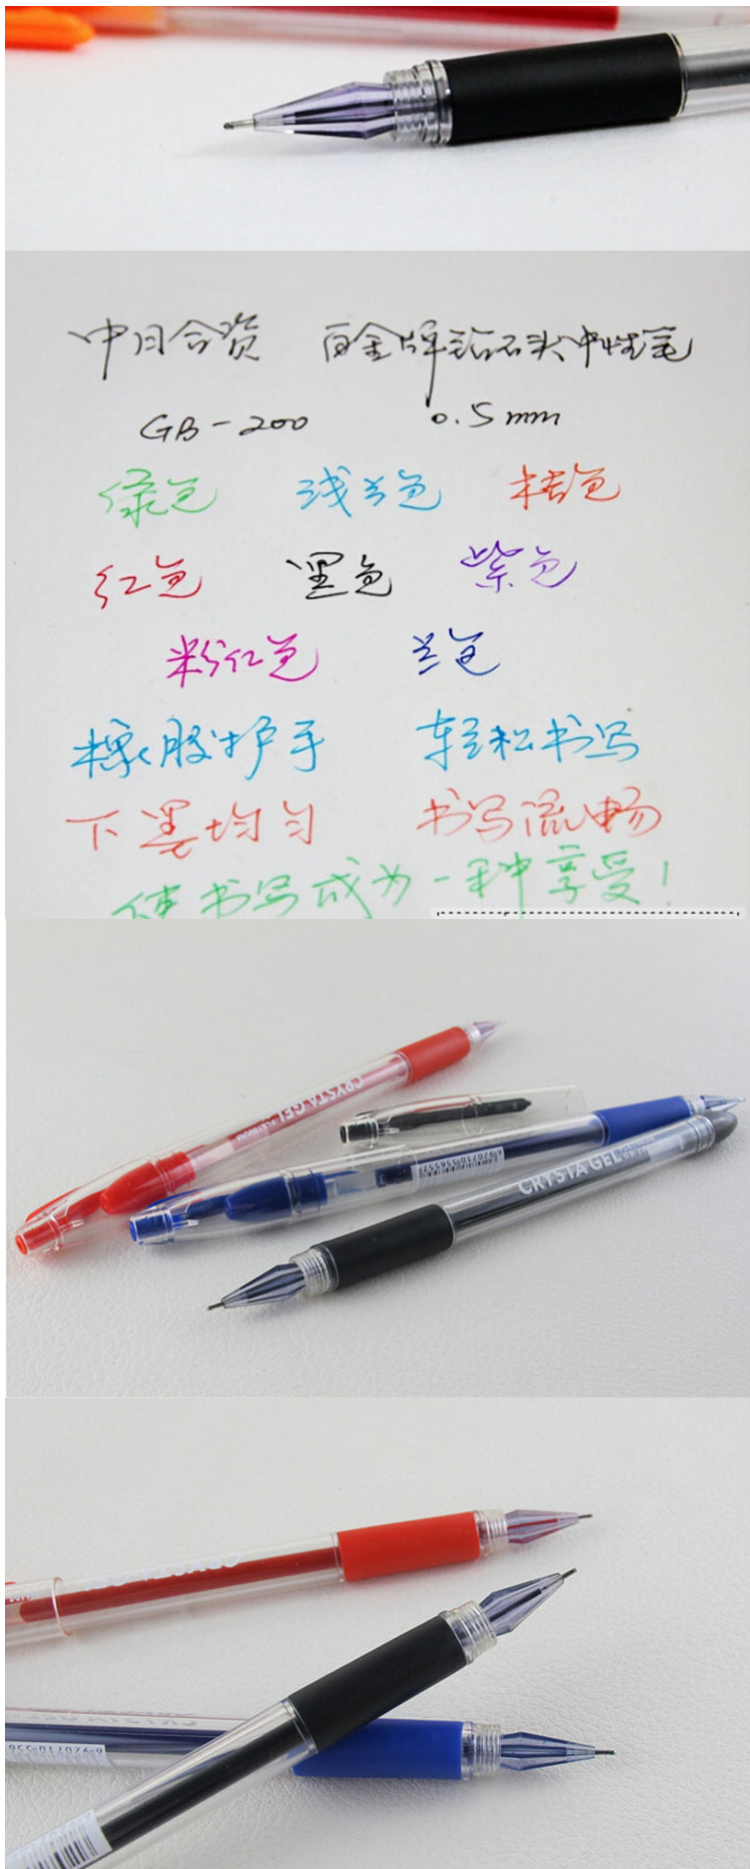 中日合资 白金牌钻石头中性笔
GB-200 0.5mm
绿色 浅兰色 桔色
红色 墨色 紫色
粉红色 兰色
橡胶护手 轻松书写
下墨均匀 书写流畅
使书写成为一种享受!
CRYSTA GEL
CRYSTA GEL